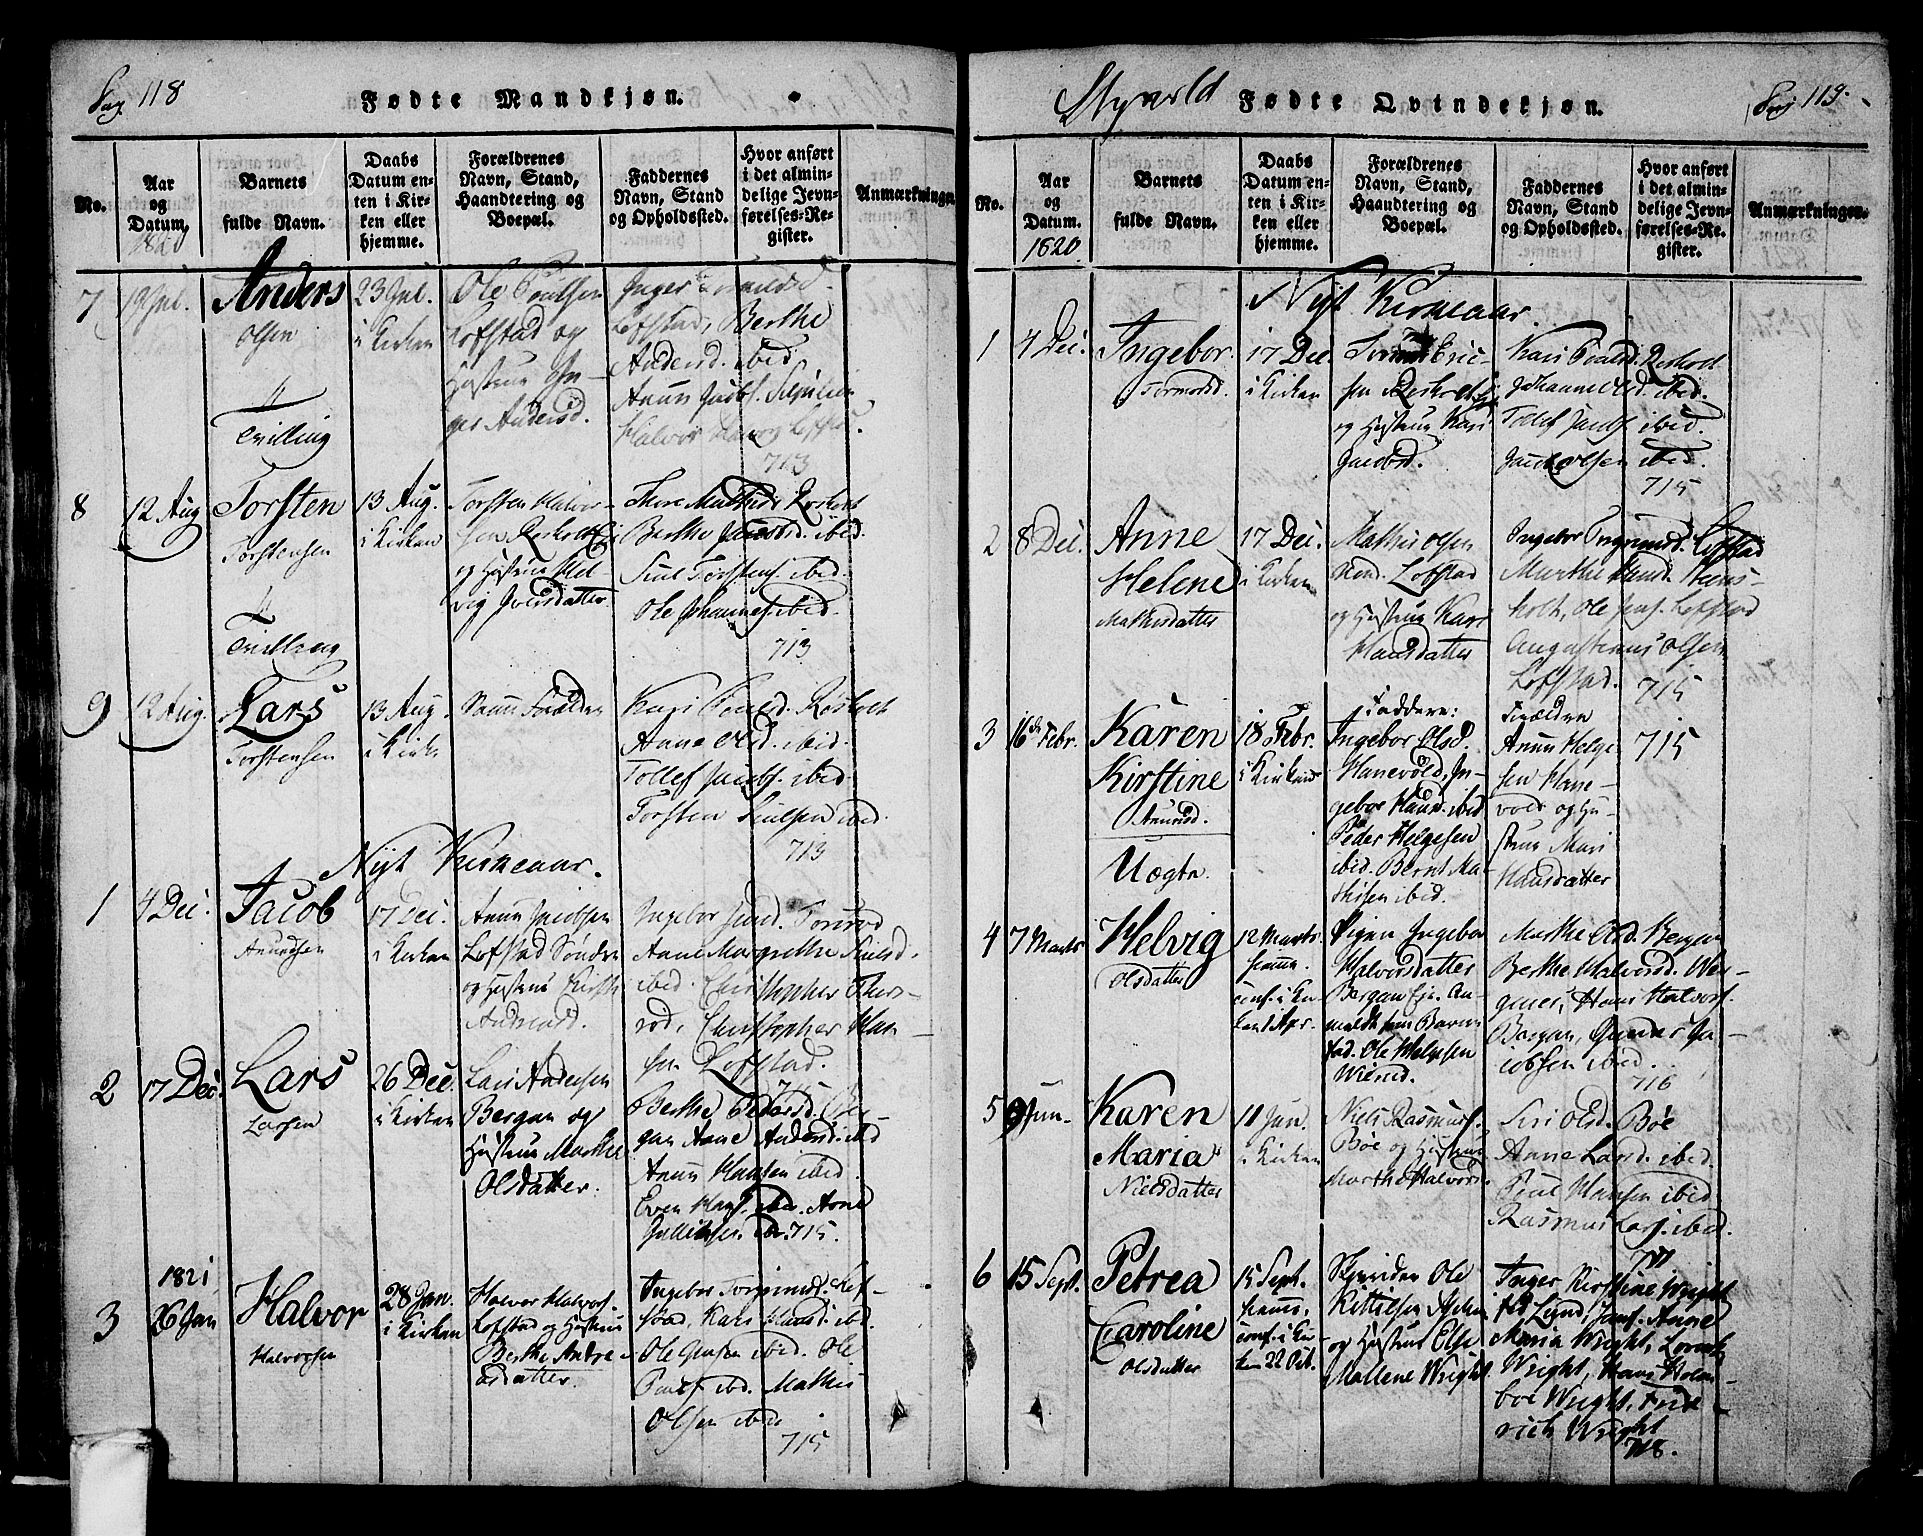 Pag. 118
Fødte Mandkjøn.
No.
Aar
og
Datum.
1820
Barnets
fulde Navn.
Daabs
Datum en-
ten i Kir-
ken eller
hjemme.
Forældrenes
Navn, Stand,
Haandtering og
Boepæl.
Faddernes
Navn, Stand
og Opholdssted.
Hvor anført
i det almin-
delige Jevn-
førelses-Re-
gister.
Anmærkninger
7
19 Jul.
Anders
Olsen
Tvilling
23 Jul.
i Kirken
Ole Poulsen
Lofstad og
Hustrue In-
ger Andersd.
Inger
Lofstad, Berthe
Andersd. ibid.
Anun Jacobs.
Halvor
713
8
12 Aug
Torsten
Torstensen
Tvilling
13 Aug.
i Kirken
Torsten Halvor-
sen Røsholt Ei
og Hustrue Hel
vig Iversdatter
Thore Mathisd. Røsholt
Berthe Jacobsd. ibid.
Siul Torstens. ibid.
Ole Johannes. ibid.
713
9
12 Aug.
Lars
Torstensen
13 Aug.
i Kirke
Samme Forældre
Kari Poulsd. Røsholt
Anne Olsd. ibid.
Tollef Jacobs. ibid
Torsten Siulsen ibid.
713
Nyt Kirkeaar.
1
4 Dec.
Jacob
Anundsen
17 Dec.
i Kirken
Anun Jacobsen
Lofstad Søndre
og Hustrue Kirsti
Andersd.
Ingebor
Anne Margrethe Siulsd.
ibid. Christopher Thors-
rod, Christopher Han-
sen Lofstad.
715
2
17 Dec.
Lars
Larsen
26 Dec.
i Kirken
Lars Andersen
Bergan og
Hustrue Marthe
Olsdatter.
Berthe Pedersd. Ber-
gan Anne Andersd. ibid
Anun Hansen ibid.
Even Hans. ibid. Arne
Gulliksen ib. 715.
1821
3
26 Jan
Halvor
Halvorsen
28 Jan.
i Kirken
Halvor Halvors.
Lofstad og Hustrue
Berthe Andre-
asdatter.
Ingebor Torgrimsd. Lof-
stad, Kari Hansd. ibid.
Ole Jensen ibid. Ole
Pouls. ibid. Mathis
Olsen ibid.
715
Styrvold
Fødte Qvindekjøn.
Pag. 119.
No.
Aar
og
Datum.
1820
Barnets
fulde Navn.
Daabs
Datum en-
ten i Kir-
ken eller
hjemme.
Forældrenes
Navn, Stand,
Haandtering og
Boepæl.
Faddernes
Navn, Stand
og Opholdssted.
Hvor anført
i det almin-
delige Jevn-
førelses-Re-
gister.
Anmærkninger.
Nyt Kirkeaar.
1
4 Dec.
Ingebor
Tormodsd.
17 Dec
i Kirken
Tormod Eric-
sen Røsholt Ei
og Hustrue Kari
Jacobsd.
Kari Poulsd. Røsholt
Johanne Olsd. ibid.
Tollef Jacobs. ibid.
Jacob Olsen ibid.
715
2
8 Dec.
Anne
Helene
Mathisdatter
17 Dec.
i Kirken
Mathis Olsen
Nord. Lofstad
og Hustrue Kari
Hansdatter
Ingebor Torgrimsd. Lofstad
Marthe Hansd.
holt, Ole Jens. Lofstad
Augustinus Olsen
Lofstad.
715
3
16de Febr.
Karen
Kirstine
Anunsd.
Uægte.
18 Febr.
i Kirken
Faddere:
Ingebor Olsd.
Hanevold, In-
gebor Hansd. ibid
Peder Helgesen
ibid. Bernt Ma-
thisen ibid.
Forældre
Anun Helge
sen Hane-
vold og Hu-
strue Mari
Hansdatter
715
4
7 Marts
Helvig
Olsdatter
12 Marts
hjemme.
conf. i Kir-
ken 1 Apr.
Pigen Ingebor
Halvorsdatter
Bergan Eje. An-
meldt som Barne
fad. Ole Helgesen
Wirid.
Marthe Olsd. Bergan
Berthe Halvorsd. Wer-
guer, Hans Halvors.
Bergan, Gunder Ja-
cobsen ibid.
716
5
9 Jun.
Karen
Maria
Nielsdatter
11 Jun.
i Kirken
Niels Rasmus.
Bøe og Hustrue
Marthe Halvors
Siri Olsd. Bøe
Anne Larsd. ibid.
Poul Hansen ibid.
Rasmus Lars. ibid.
717
6
15 Sept.
Petrea
Caroline
Olsdatter
15 Sept.
hjemme,
conf. i Kir-
ken 22 Oct.
Skprider Ole
Kittilsen
og Hustrue Else
Mallene Wright
Inger Kirstine Wright
fød Lund, Jomf. Anne
Maria Wright, Lorentz
Wright, Hans Holm
boe Wright, Fride-
rich Wright
718.